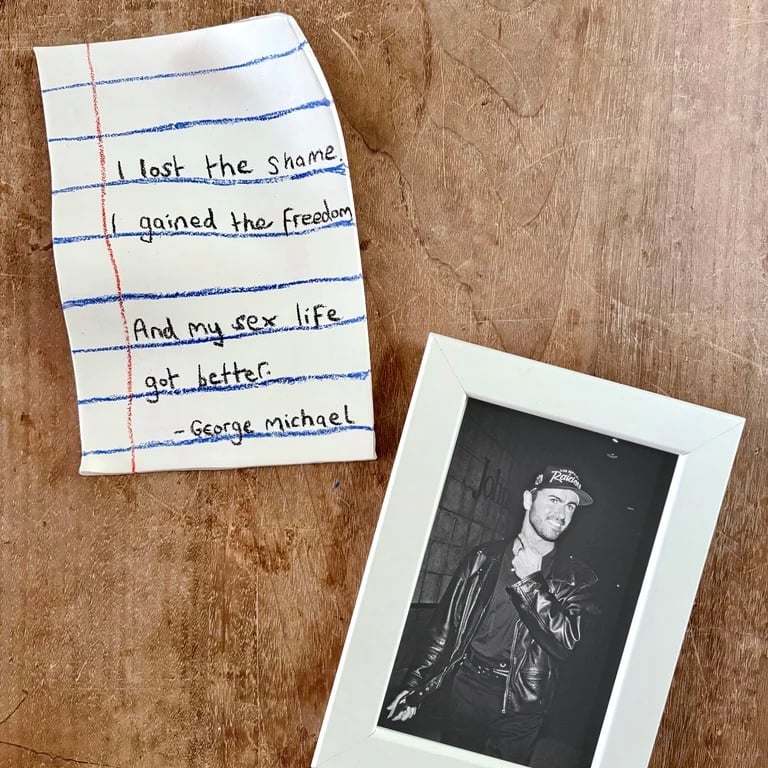 I lost the shame.
I gained the freedom
And my sex life
got better.
- George Michael
Raiders
John